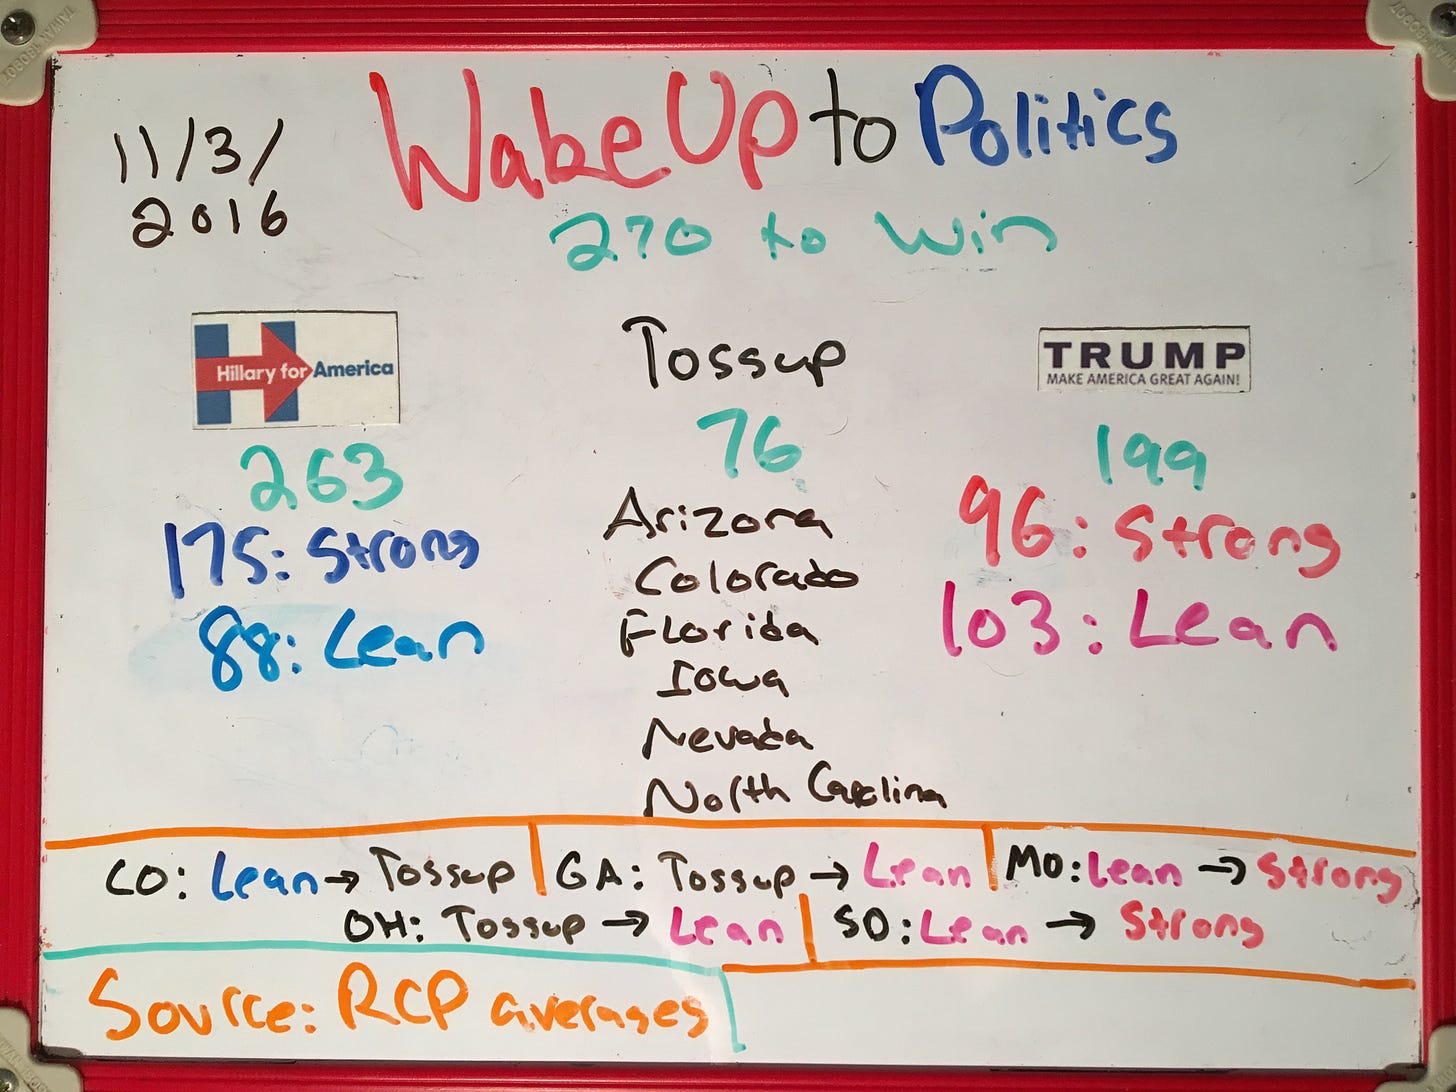 11/3/
2016
Wake Up to Politics
270 to Win
Hillary for America
263
175: Strong
88: Lean
Tossup
76
Arizona
Colorado
Florida
Iowa
Nevada
North Carolina
TRUMP
MAKE AMERICA GREAT AGAIN!
199
96: Strong
103: Lean
CO: Lean → Tossup
GA: Tossup → Lean
MO: Lean → Strong
OH: Tossup → Lean
SD: Lean → Strong
Source: RCP averages